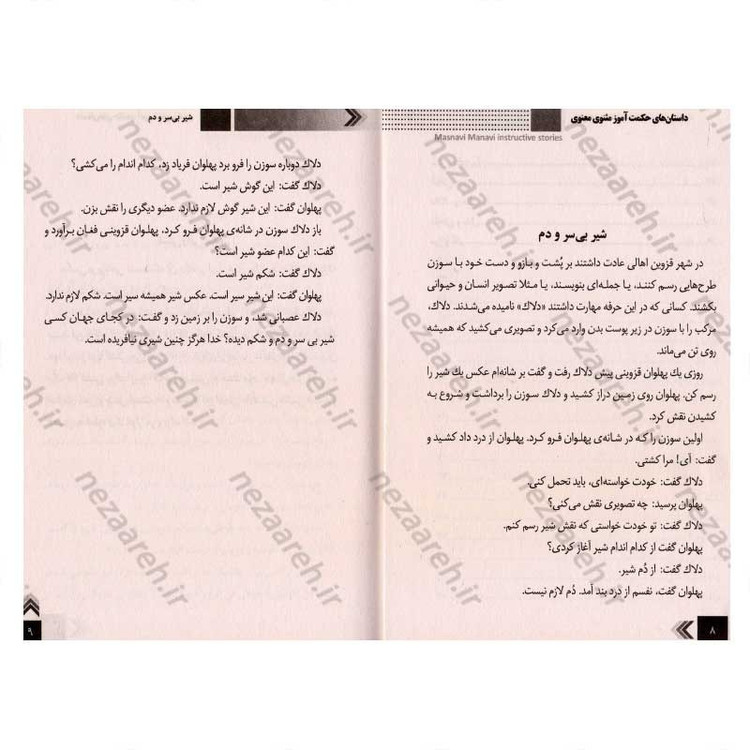 داستان‌های حکمت آموز مثنوی معنوی
Masnavi Manavi instructive stories
شیر بی‌سر و دم
در شهر قزوین اهالی عادت داشتند بر پُشت و بازو و دست خود با سوزن
طرح‌هایی رسم کنند، یا جمله‌ای بنویسند، یا مثلا تصویر انسان و حیوانی
بکشند. کسانی که در این حرفه مهارت داشتند «دلاك» نامیده می‌شدند. دلاك،
مرکب را با سوزن در زیر پوست بدن وارد می‌کرد و تصویری می‌کشید که همیشه
روی تن می‌ماند.
روزی یك پهلوان قزوینی پیش دلاك رفت و گفت بر شانه‌ام عکس یك شیر را
رسم کن. پهلوان روی زمین دراز کشید و دلاك سوزن را برداشت و شروع به
کشیدن نقش کرد.
اولین سوزن را که در شانه‌ی پهلوان فرو کرد. پهلوان از درد داد کشید و
گفت: آی! مرا کشتی.
دلاك گفت: خودت خواسته‌ای، باید تحمل کنی.
پهلوان پرسید: چه تصویری نقش می‌کنی؟
دلاك گفت: تو خودت خواستی که نقش شیر رسم کنم.
پهلوان گفت از کدام اندام شیر آغاز کردی؟
دلاك گفت: از دُم شیر.
پهلوان گفت، نفسم از درد بند آمد. دُم لازم نیست.
۸
شیر بی‌سر و دم
دلاك دوباره سوزن را فرو برد پهلوان فریاد زد، کدام اندام را می‌کشی؟
دلاك گفت: این گوش شیر است.
پهلوان گفت: این شیر گوش لازم ندارد. عضو دیگری را نقش بزن.
باز دلاك سوزن در شانه‌ی پهلوان فرو کرد، پهلوان قزوینی فغان برآورد و
گفت: این کدام عضو شیر است؟
دلاك گفت: شکم شیر است.
پهلوان گفت: این شیر سیر است. عکس شیر همیشه سیر است. شکم لازم ندارد.
دلاك عصبانی شد، و سوزن را بر زمین زد و گفت: در کجای جهان کسی
شیر بی سر و دم و شکم دیده؟ خدا هرگز چنین شیری نیافریده است.
۹
nezaareh.ir
nezaareh.ir
nezaareh.ir
nezaareh.ir
nezaareh.ir
nezaareh.ir
nezaareh.ir
nezaareh.ir